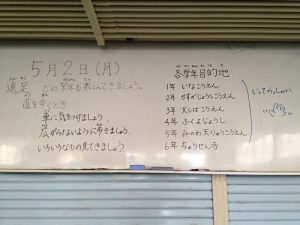 5月2日(月)
遠足 どの学年も楽しんできましょう。
道を歩くとき
車に気をつけましょう。
広がらないように歩きましょう。
いろいろなもの見てきましょう
各学年目的地
1年 いなこうえん
2年 かすがじょうしこうえん
3年 大しばこうえん
4年 ふくよじょうし
5年 みのわ天りゅうこうえん
6年
いってらっしゃい